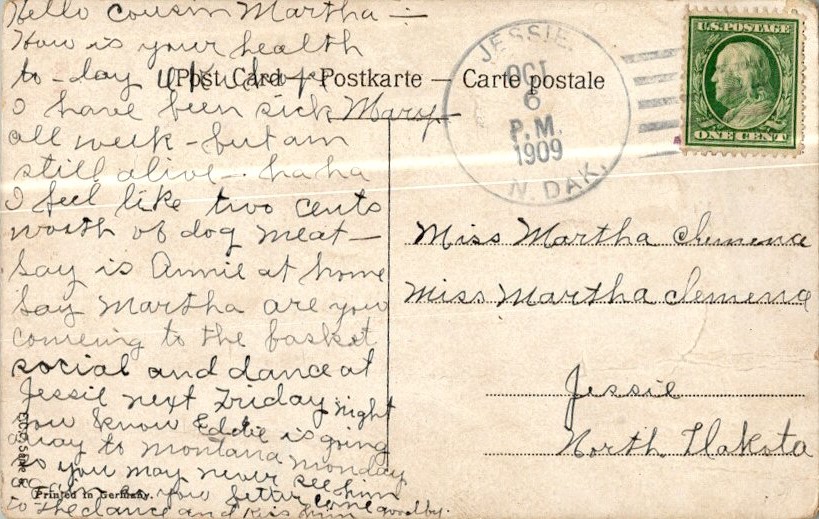 Hello Cousin Martha —
How is your health
to-day
I have been sick Mary —
all week - but am
still alive - ha ha
I feel like two cents
worth of dog meat —
Say is Annie at home
Say Martha are you
comeing to the basket
social and dance at
Jessie next Friday night
you know Eddie is going
away to Montana Monday
so you may never see him
you better come
to the dance and kiss him goodby.
Post Card — Postkarte — Carte postale
Printed in Germany.
JESSIE.
OCT
6
P.M.
1909
N. DAK.
U.S. POSTAGE
ONE CENT
Miss Martha Clemena
Miss Martha Clemena
Jessie
North Dakota